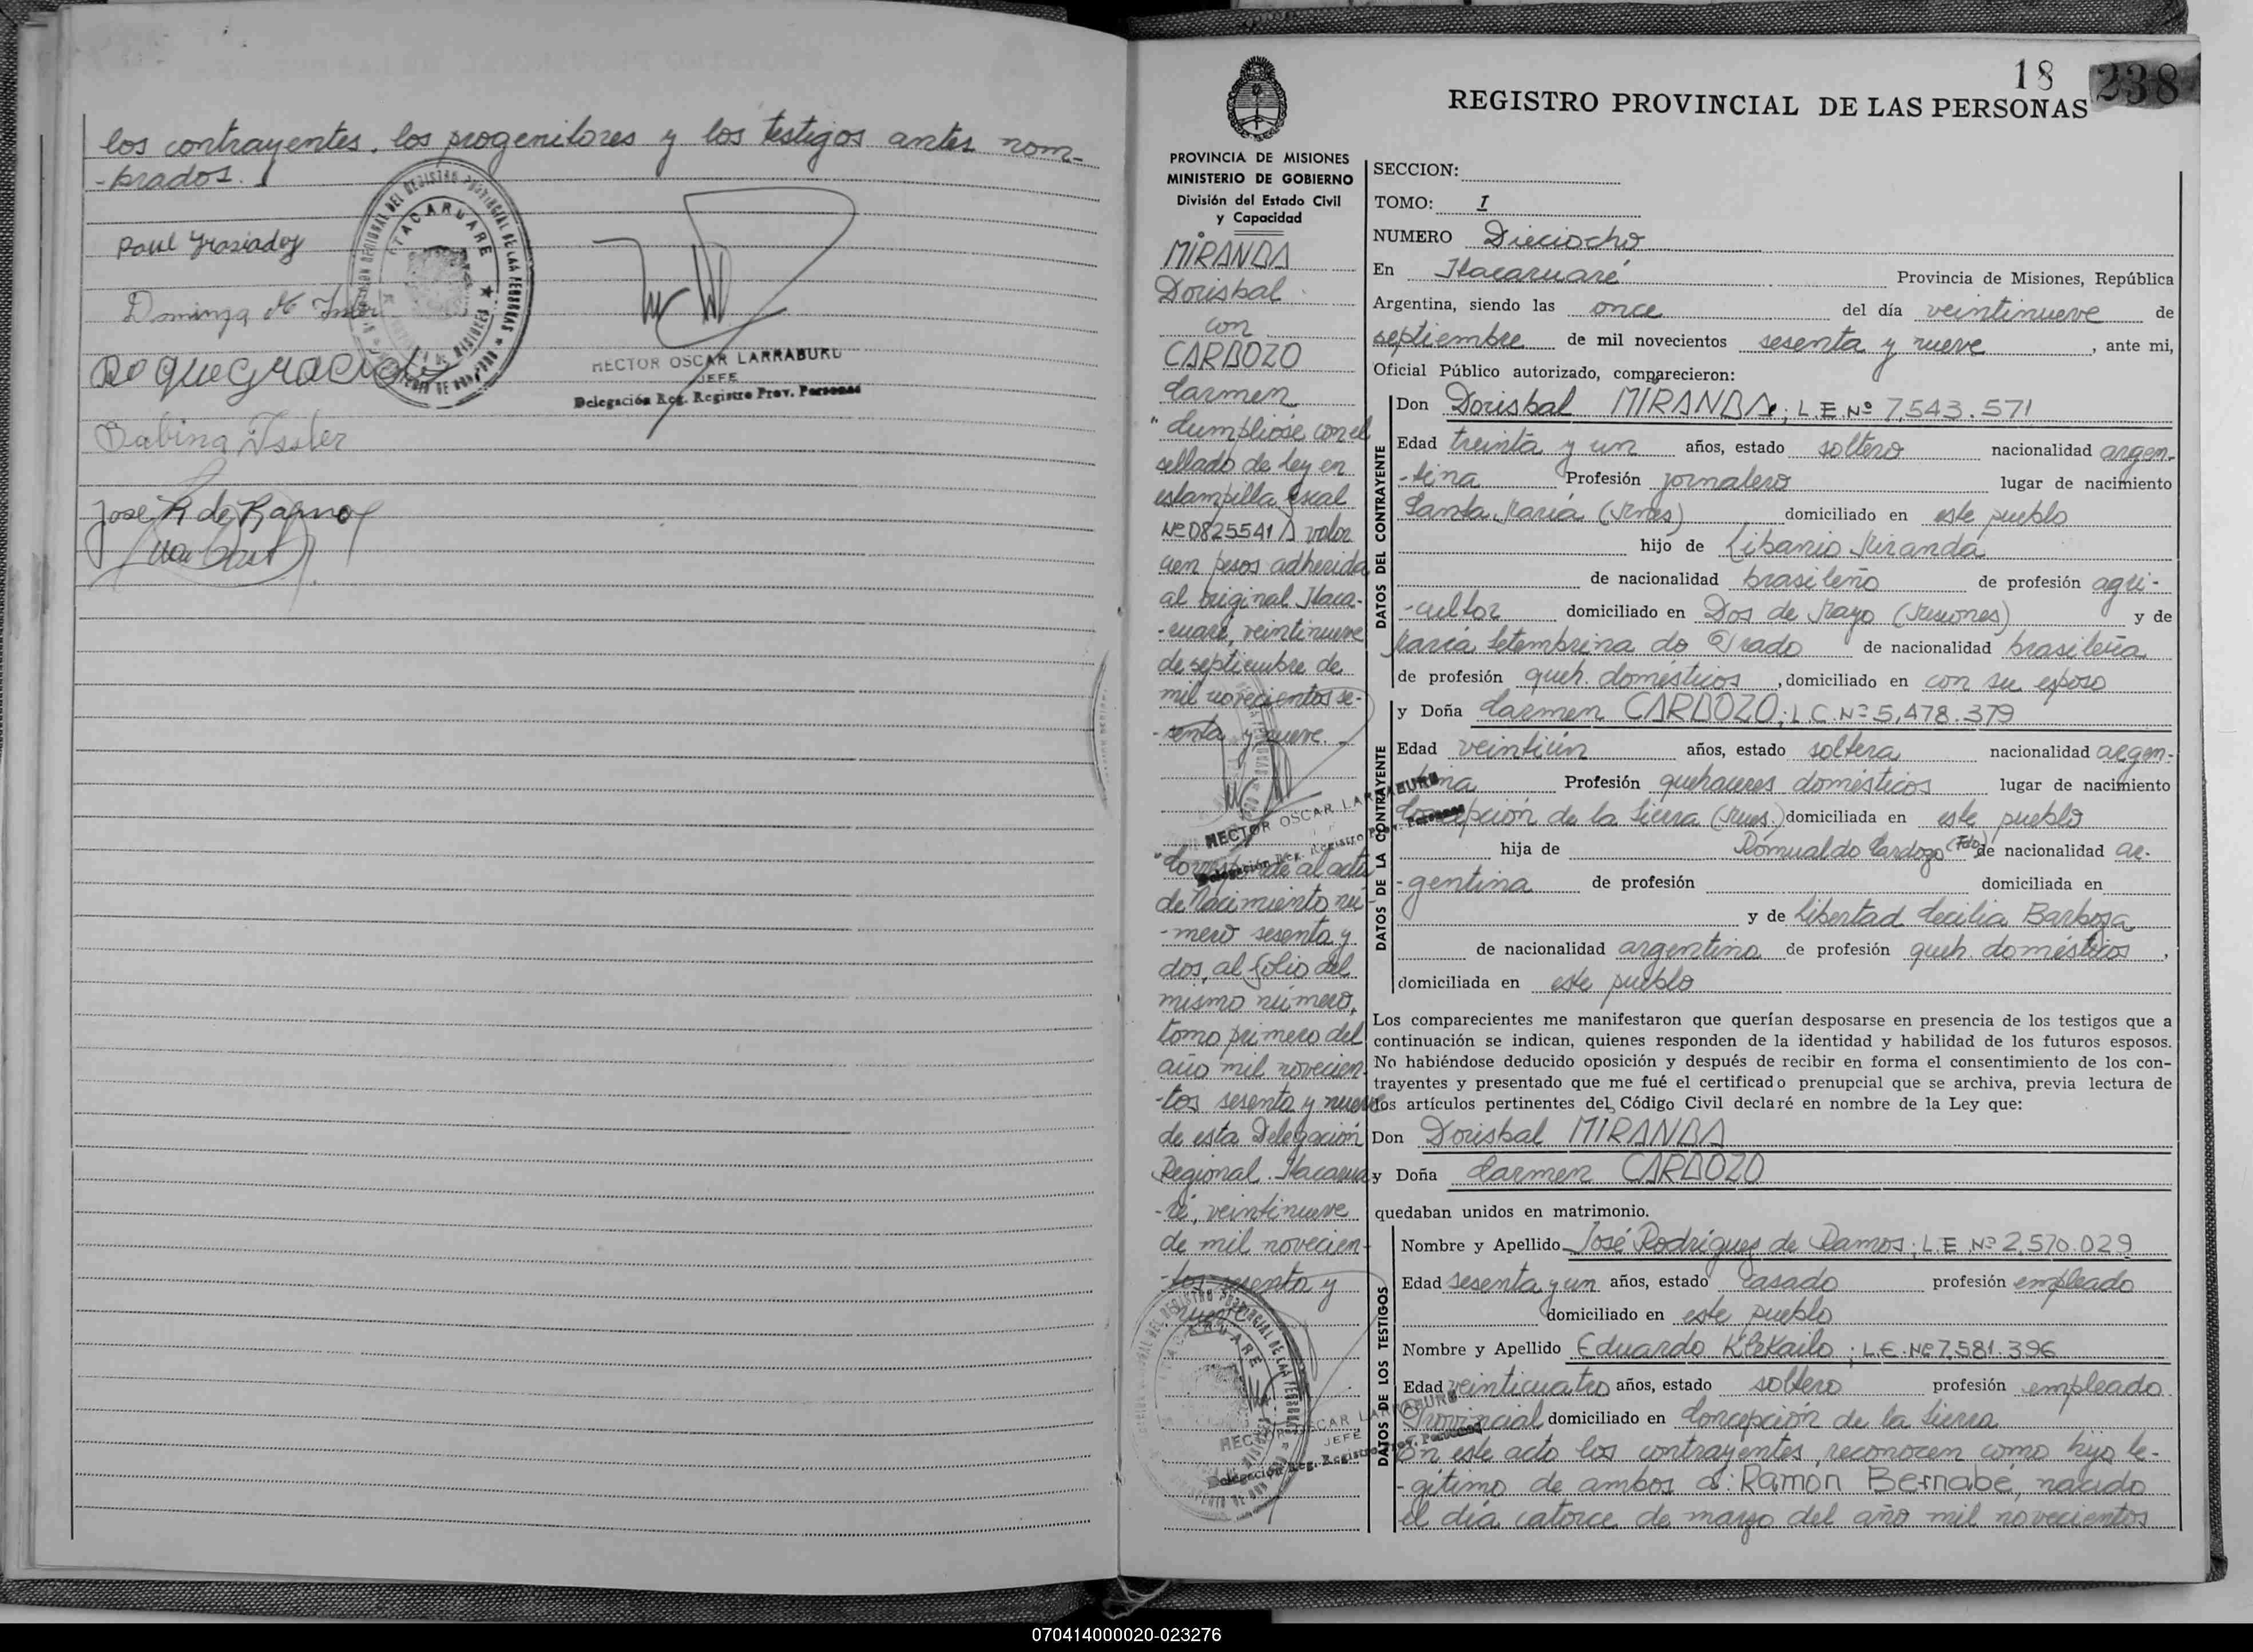 los contrayentes, los progenitores y los testigos antes nom-
-brados.
Dominga
Roque
Sabina Issler
José R de Ramos
ITACARUARE
HECTOR OSCAR LARRABURU
JEFE
Delegación Reg. Registro Prov. Personas
18 238
REGISTRO PROVINCIAL DE LAS PERSONAS
PROVINCIA DE MISIONES
MINISTERIO DE GOBIERNO
División del Estado Civil
y Capacidad
MIRANDA
Dorisbal
con
CARDOZO
Carmen
"Cumplióse con el
sellado de ley en
estampilla fiscal
Nº 0825541 A valor
cien pesos adherida
al original Itaca-
-ruaré, veintinueve
de septiembre de
mil novecientos se-
-senta y nueve.
HECTOR OSCAR LARRABURU
Delegación Reg. Registro Prov. Personas
"Corresponde al acta
de Nacimiento nú-
-mero sesenta y
dos, al folio del
mismo número,
tomo primero del
año mil novecien-
-tos sesenta y nueve
de esta Delegación
Regional. Itacarua-
-ré, veintinueve
de mil novecien-
-tos sesenta y
nueve
HECTOR OSCAR LARRABURU
JEFE
Delegación Reg. Registro Prov. Personas
SECCION:
TOMO: I
NUMERO Dieciocho
En Itacaruaré Provincia de Misiones, República
Argentina, siendo las once del día veintinueve de
septiembre de mil novecientos sesenta y nueve, ante mi,
Oficial Público autorizado, comparecieron:
DATOS DEL CONTRAYENTE
Don Dorisbal MIRANDA; L.E. Nº 7.543.571
Edad treinta y un años, estado soltero nacionalidad argen-
-tina Profesión jornalero lugar de nacimiento
Santa María (Mnes) domiciliado en este pueblo
hijo de Libanio Miranda
de nacionalidad brasileño de profesión agri-
-cultor domiciliado en Dos de Mayo (Misiones) y de
María Setembrina do Prado de nacionalidad brasileña
de profesión queh. domésticos, domiciliado en con su esposo
DATOS DE LA CONTRAYENTE
y Doña Carmen CARDOZO; L.C. Nº 5.478.379
Edad veintiún años, estado soltera nacionalidad argen-
-tina Profesión quehaceres domésticos lugar de nacimiento
Concepción de la Sierra (Mnes.) domiciliada en este pueblo
hija de Romualdo Cardozo (Fdo) de nacionalidad ar-
-gentina de profesión domiciliada en
y de Libertad Cecilia Barboza
de nacionalidad argentina de profesión queh. domésticos,
domiciliada en este pueblo
Los comparecientes me manifestaron que querían desposarse en presencia de los testigos que a
continuación se indican, quienes responden de la identidad y habilidad de los futuros esposos.
No habiéndose deducido oposición y después de recibir en forma el consentimiento de los con-
trayentes y presentado que me fué el certificado prenupcial que se archiva, previa lectura de
los artículos pertinentes del Código Civil declaré en nombre de la Ley que:
Don Dorisbal MIRANDA
y Doña Carmen CARDOZO
quedaban unidos en matrimonio.
DATOS DE LOS TESTIGOS
Nombre y Apellido José Rodríguez de Ramos; L.E Nº 2.570.029
Edad sesenta y un años, estado casado profesión empleado
domiciliado en este pueblo
Nombre y Apellido Eduardo ; L.E. Nº 7.581.396
Edad veinticuatro años, estado soltero profesión empleado
Provincial domiciliado en Concepción de la Sierra
En este acto los contrayentes, reconocen como hijo le-
-gítimo de ambos a: Ramon Bernabe, nacido
el día catorce de marzo del año mil novecientos
070414000020-023276